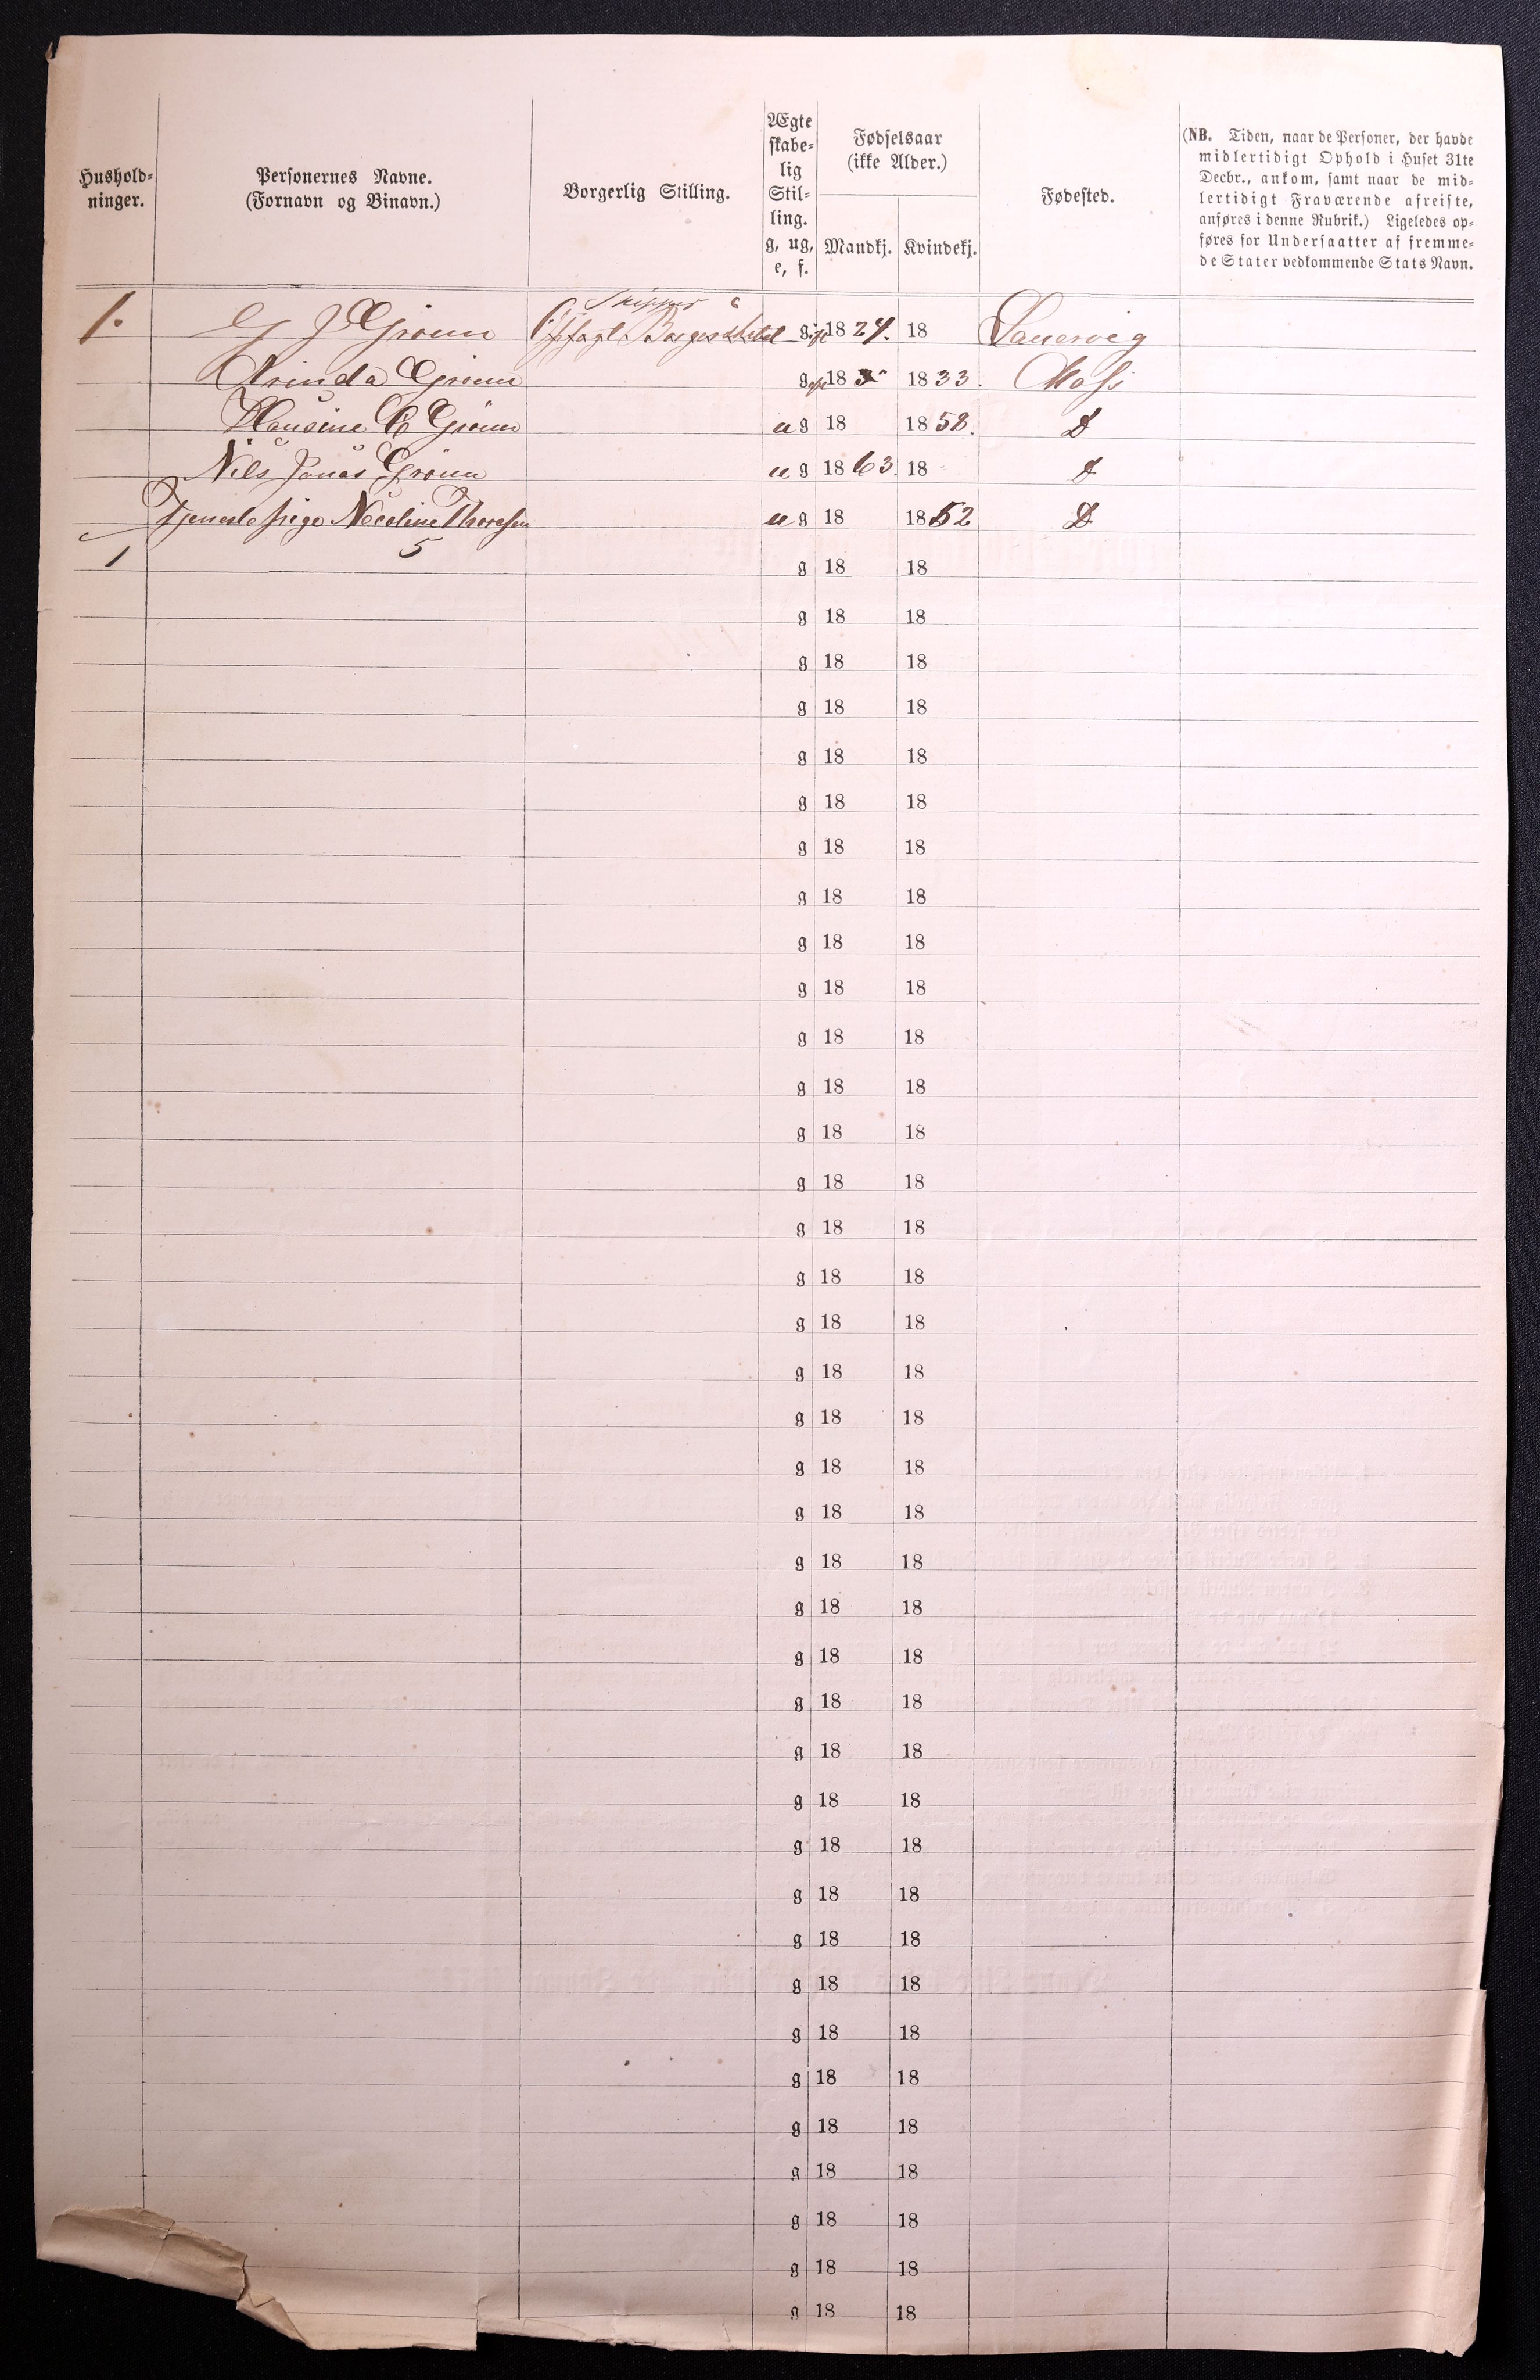 Hushold-
ninger.
Personernes Navne.
(Fornavn og Binavn.)
Borgerlig Stilling.
Ægte
skabe-
lig
Stil-
ling.
g, ug,
e, f.
Fødselsaar
(ikke Alder.)
Mandkj.
Kvindekj.
Fødested.
(NB. Tiden, naar de Personer, der havde
midlertidigt Ophold i Huset 31te
Decbr., ankom, samt naar de mid-
lertidigt Fraværende afreiste,
anføres i denne Rubrik.) Ligeledes op-
føres for Undersaatter af fremme-
de Stater vedkommende Stats Navn.
Skipper
1. G J Grønn gift 1824. 18 Laurvig
Arinda Grønn gift 18 1833. Moss
Hansine C Grønn ug 18 1858. D
Nils Jonas Grønn ug 1863. 18 d
Tjenestepige Nicoline Thoresen ug 18 1852 D
1 5
g 18 18
g 18 18
g 18 18
g 18 18
g 18 18
g 18 18
g 18 18
g 18 18
g 18 18
g 18 18
g 18 18
g 18 18
g 18 18
g 18 18
g 18 18
g 18 18
g 18 18
g 18 18
g 18 18
g 18 18
g 18 18
g 18 18
g 18 18
g 18 18
g 18 18
g 18 18
g 18 18
g 18 18
g 18 18
g 18 18
g 18 18
g 18 18
g 18 18
g 18 18
g 18 18
g 18 18
g 18 18
g 18 18